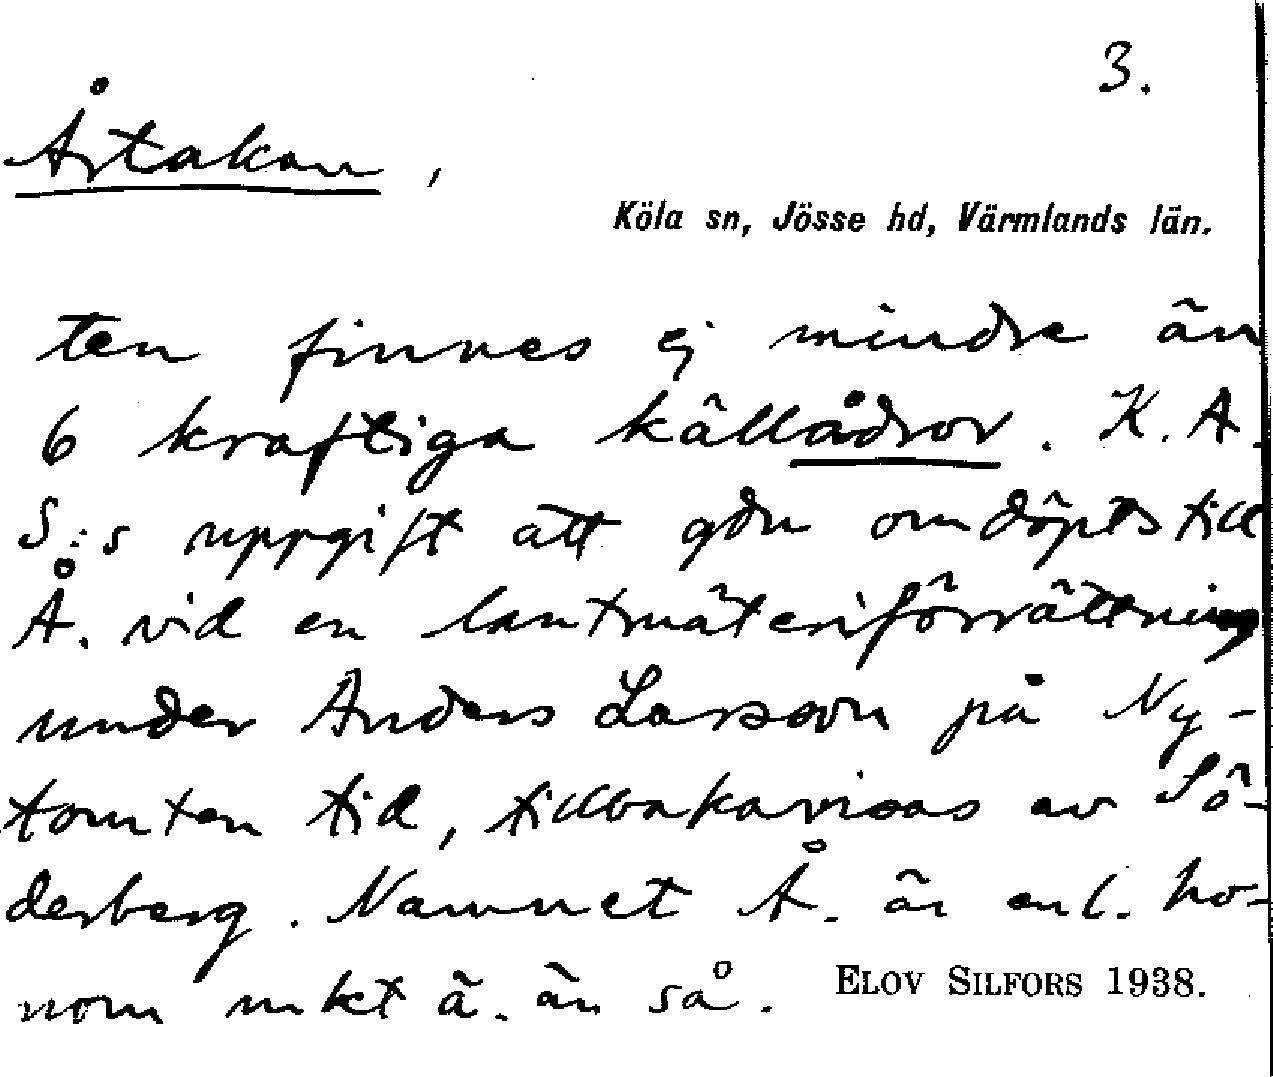 3.
Årtakan,
Köla sn, Jösse hd, Värmlands län.
ten finnes ej mindre än
6 kraftiga källådror. K. A.
S:s uppgift att gdn omdöpts till
Å. vid en lantmäteriförrättning
under Anders Larsson på Ny-
tomten tid, tillbakavisas av Sö-
derberg. Namnet Å. är enl. ho-
nom mkt ä. än så.
ELOV SILFORS 1938.